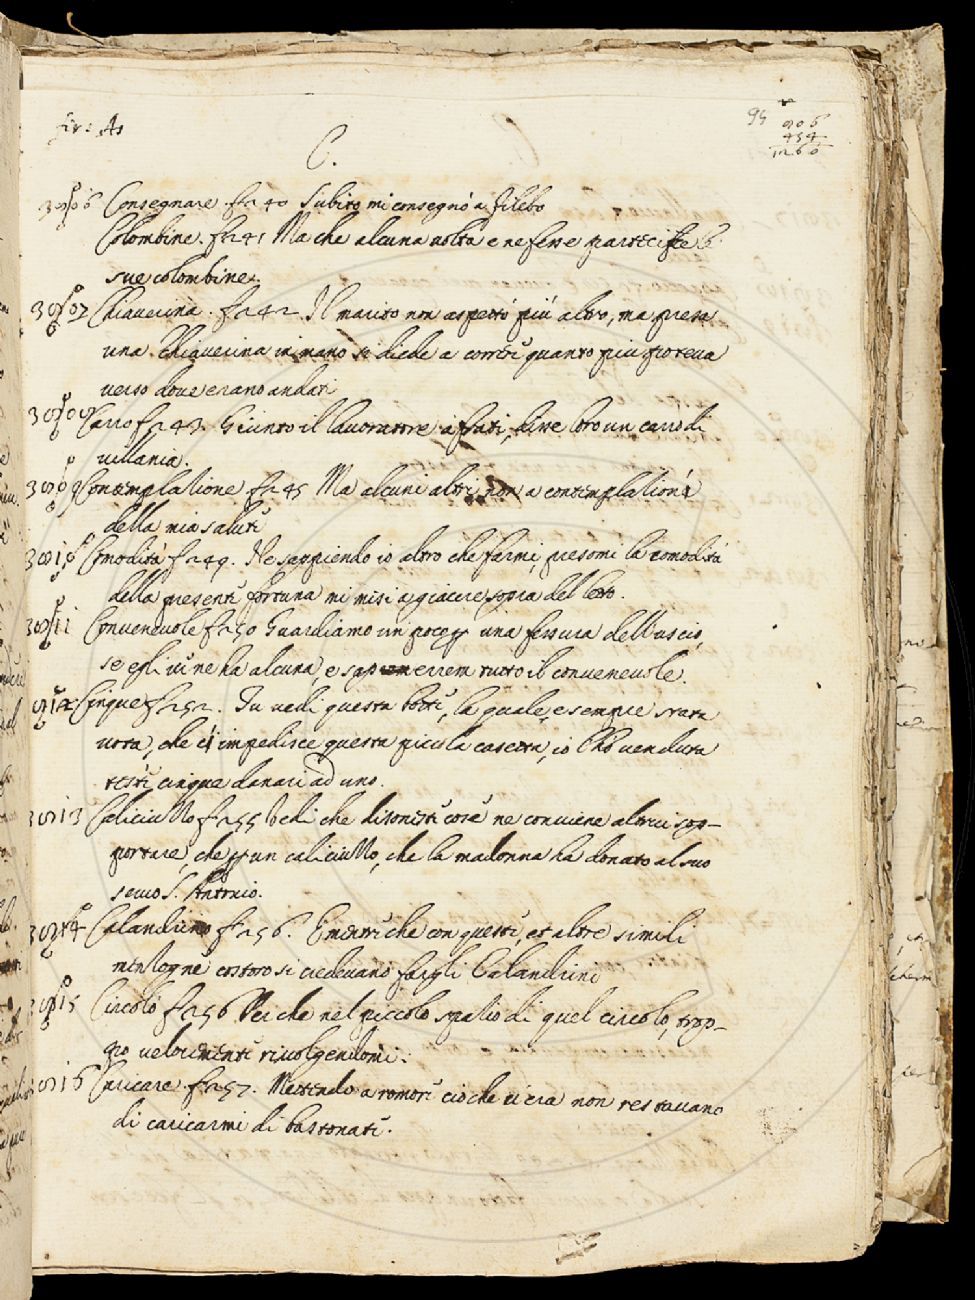 fir: A1
95
906
454
1260
C.
Consegnare. fir 40 Subito mi consegnò a filebo
Colombine. fir 41 Ma che alcuna uolta e ne fesse partecife le
sue colombine.
Chiauerina. fir 42. Il marito non aspettò più altro, ma presa
una Chiauerina in mano si diede a correr quanto piu poteua
uerso doue erano andati
Carro fir 43. Giunto il lauoratore a frati, disse loro un carro di
uillania.
Contemplatione fir 45 Ma alcuni altri non a contemplatione
della mia salute
Comodità fir 49. Ne sappiendo io altro che farmi, presomi la comodità
della presente fortuna mi misi a giacere sopra del letto.
Conueneuole fir 50 Guardiamo un poco p una fessura dell'uscio,
se egli ui ne ha alcuna, e saprem tutto il conueneuole.
Cinque fir 52. Tu uedi questa botte, la quale, e sempre stata
uota, che ci impedisce questa picciola casetta, io l'ho uenduta
teste cinque danari ad uno.
Caliciuzzo fir 55 Vedi che disoneste cose ne conuiene altrui sop-
portare, che p un caliciuzzo, che la madonna ha donato al suo
seruo S. Antonio.
Calandrino fir 56. E mentre che con queste, et altre simili
menzogne costoro si credeuano fargli Calandrini
Circolo fir 56 Per che nel piccolo spatio di quel circolo, trop-
po uelocemente riuolgendomi.
Caricare. fir 57. Mettendo a romore ciò che ui era non restauano
di caricarmi di bastonate.